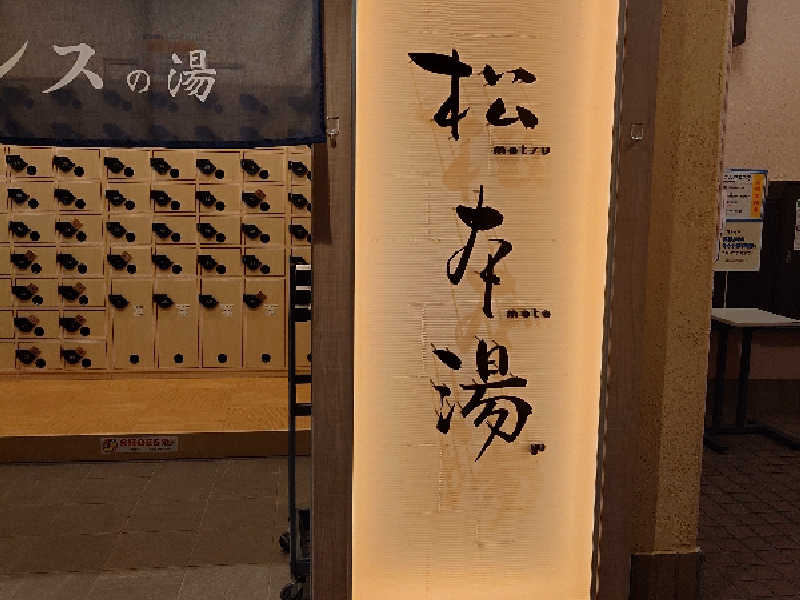 ンスの湯
松
matsu
本
moto
湯
yu
SHOES